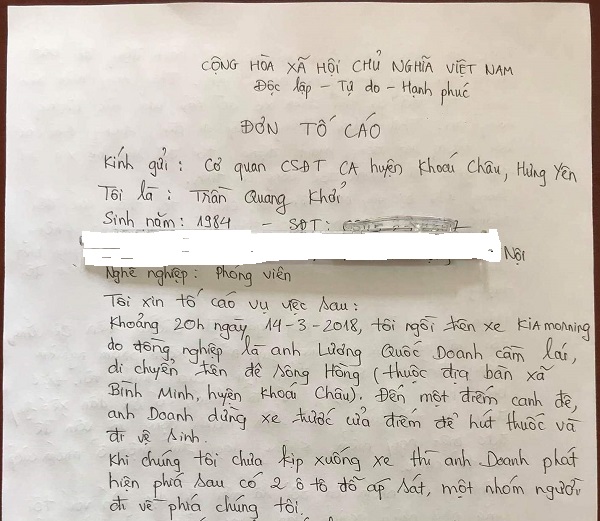 CỘNG HÒA XÃ HỘI CHỦ NGHĨA VIỆT NAM
Độc lập - Tự do - Hạnh phúc
ĐƠN TỐ CÁO
Kính gửi : Cơ quan CSĐT CA huyện Khoái Châu, Hưng Yên
Tôi là : Trần Quang Khởi
Sinh năm: 1984 - SĐT:
Nội
Nghề nghiệp: Phóng viên
Tôi xin tố cáo vụ việc sau:
Khoảng 20h ngày 14-3-2018, tôi ngồi trên xe KIA morning
do đồng nghiệp là anh Lương Quốc Doanh cầm lái,
di chuyển trên đê sông Hồng (thuộc địa bàn xã
Bình Minh, huyện Khoái Châu). Đến một điếm canh đê,
anh Doanh dừng xe trước cửa điếm để hút thuốc và
đi vệ sinh.
Khi chúng tôi chưa kịp xuống xe thì anh Doanh phát
hiện phía sau có 2 ô tô đỗ áp sát, một nhóm người
đi về phía chúng tôi.